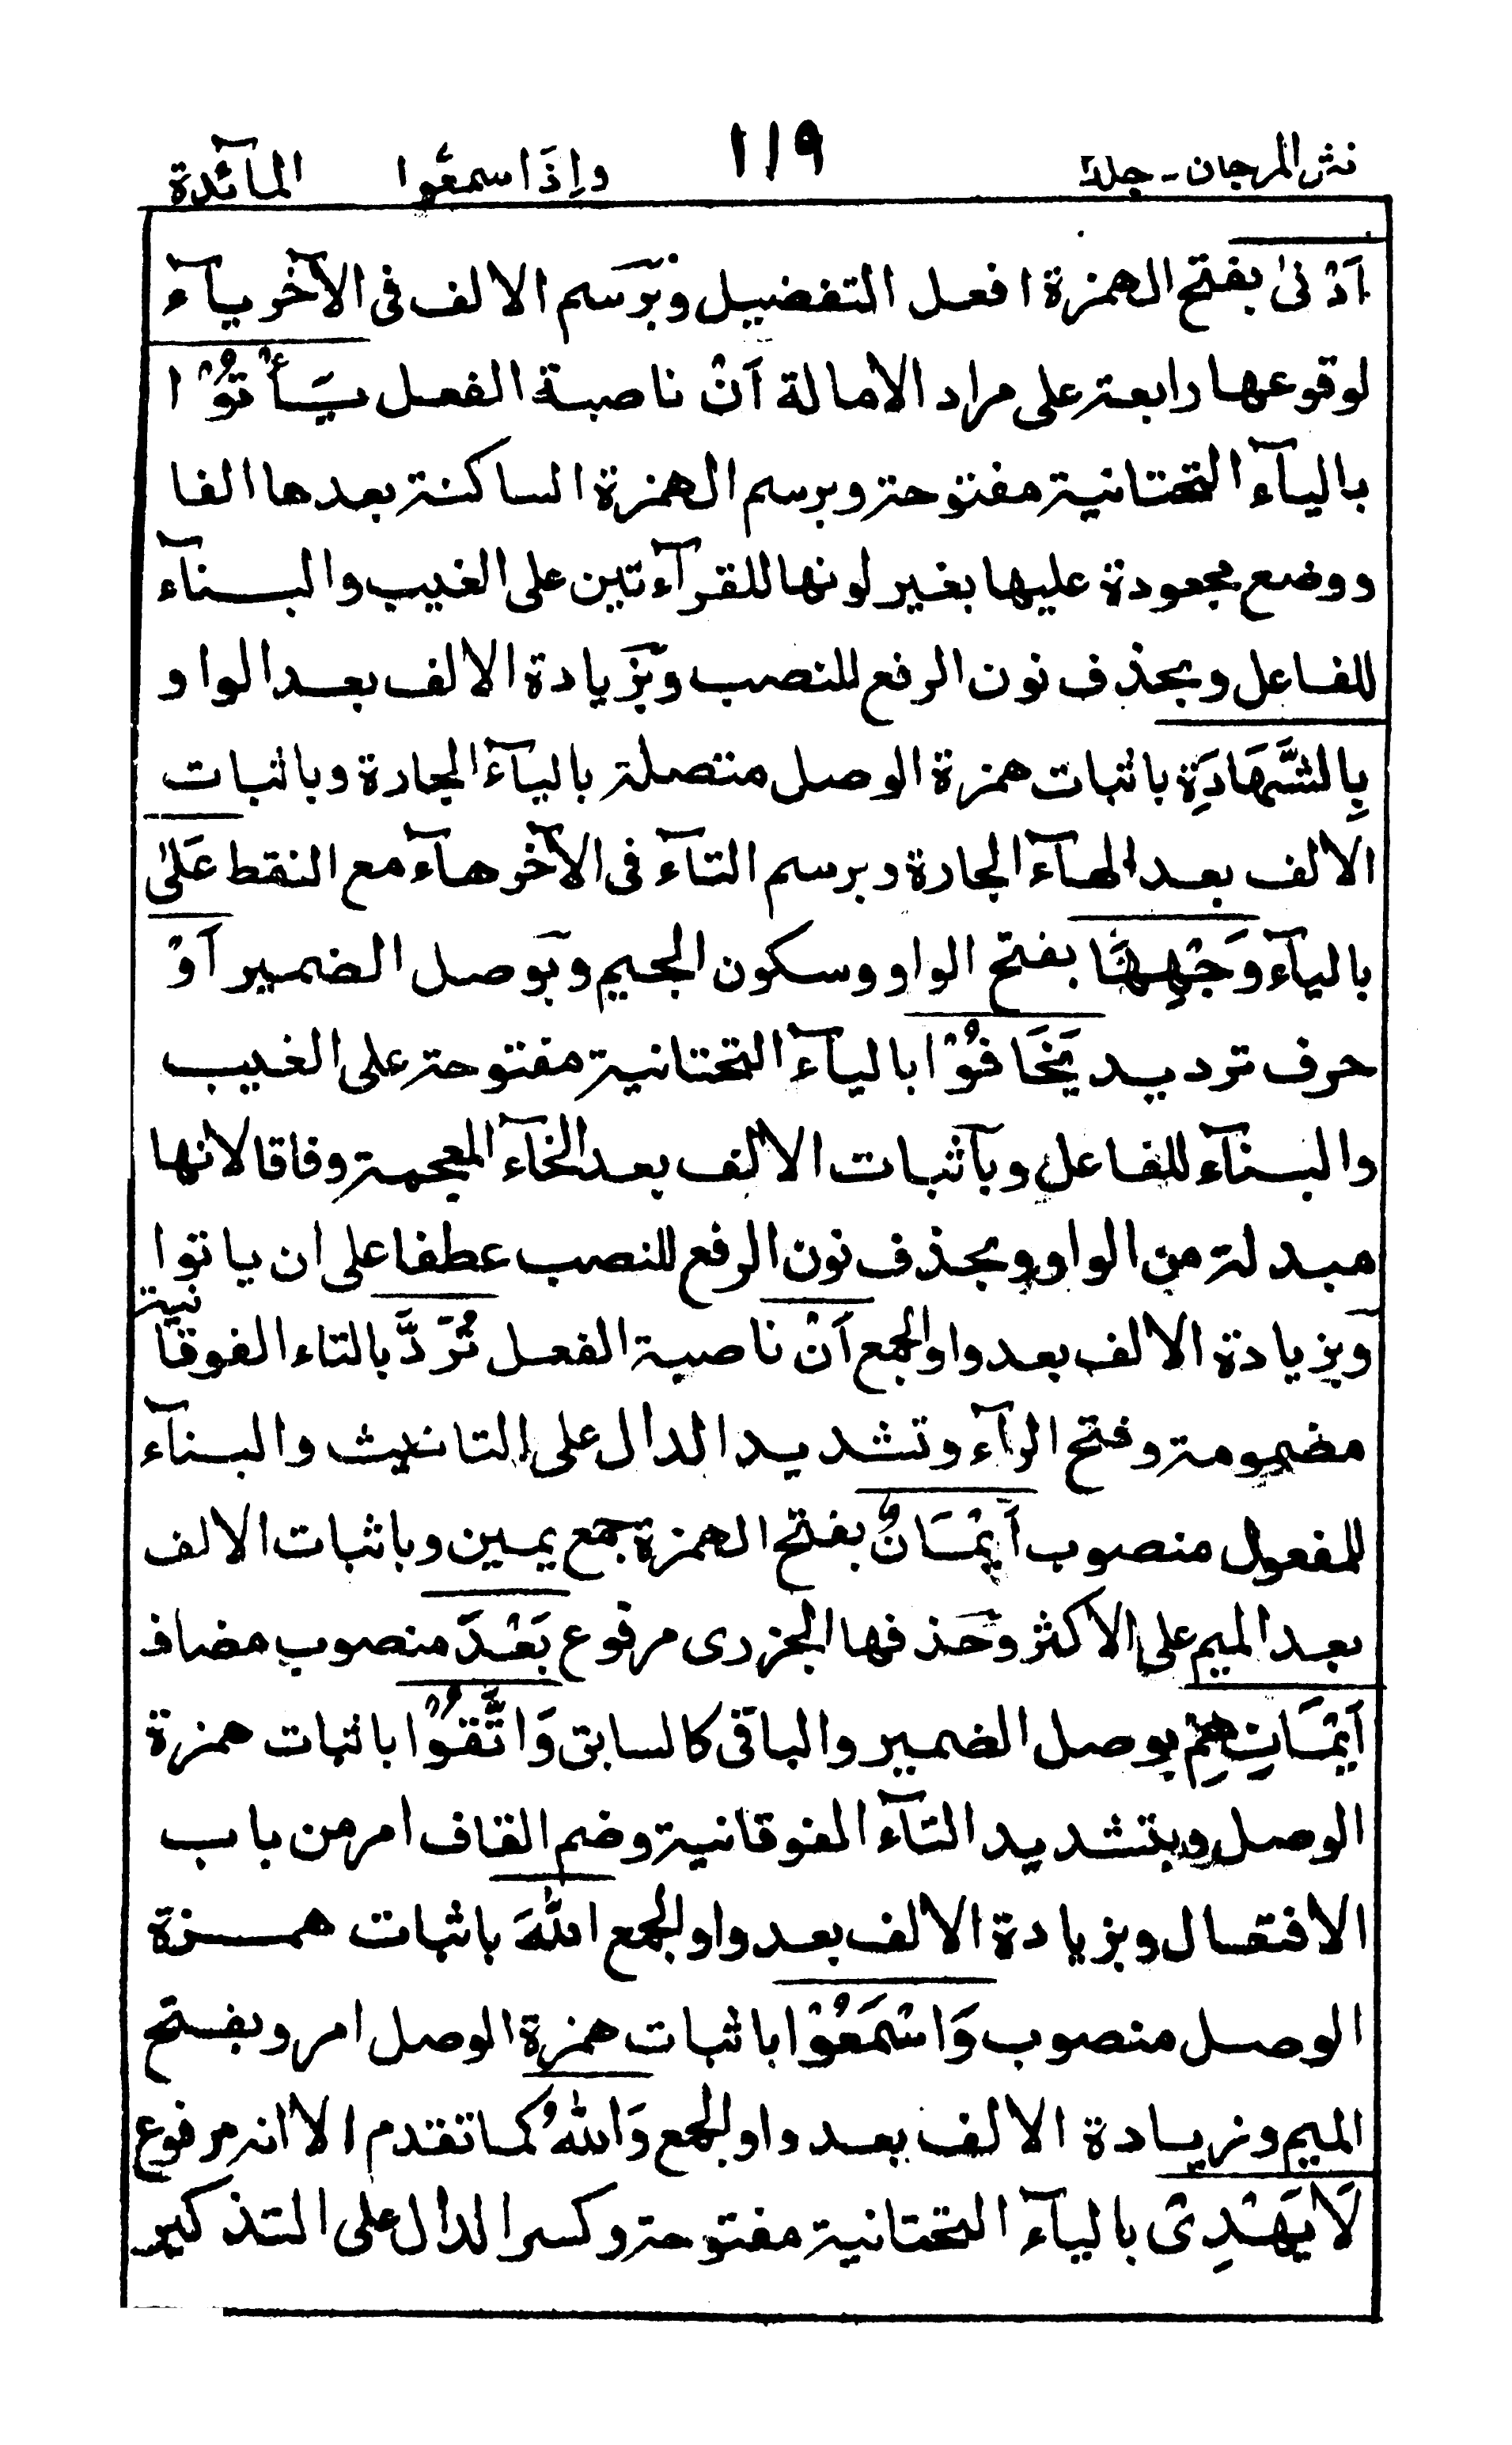 نثر المرجان - جلد ١١٩ واذا سمعوا المآئدة
اَدْنٰى بفتح الهمزة افعل التفضيل وبرسم الالف فى الآخر يآء
لوقوعها رابعة على مراد الامالة اَنْ ناصبة الفعل يَّأْتُوْا
باليآء التحتانية مفتوحة وبرسم الهمزة الساكنة بعدها الفا
ووضع مجعودة عليها بغير لونها للقرآءتين على الغيب والبنآء
للفاعل وبحذف نون الرفع للنصب وبزيادة الالف بعد الواو
بِالشَّهَادَةِ باثبات همزة الوصل متصلة باليآء الجارة وباثبات
الالف بعد الهآء الجارة وبرسم التآء فى الآخر هآء مع النقط عَلٰى
باليآء وَجْهِهَا بفتح الواو وسكون الجيم وبوصل الضمير اَوْ
حرف ترديد يَخَافُوْا باليآء التحتانية مفتوحة على الغيب
والبنآء للفاعل وبآثبات الالف بعد الخآء المعجمة وفاقا لانها
مبدلة من الواو وبحذف نون الرفع للنصب عطفا على ان ياتوا
وبزيادة الالف بعد واو الجمع اَنْ ناصبة الفعل تُرَدَّ بالتاء الفوقانية
مضمومة وفتح الرآء وتشديد الدال على التانيث والبنآء
للمفعول منصوب اَيْمَانٌ بفتح الهمزة جمع يمين وباثبات الالف
بعد الميم على الاكثر وحذفها الجزرى مرفوع بَعْدَ منصوب مضاف
اَيْمَانِهِمْ بوصل الضمير والباقى كالسابق وَاتَّقُوْا باثبات همزة
الوصل وبتشديد التآء الفوقانية وضم القاف امر من باب
الافتعال وبزيادة الالف بعد واو الجمع اللّٰهَ باثبات همزة
الوصل منصوب وَاسْمَعُوْا باثبات همزة الوصل امر وبفتح
الميم وزيادة الالف بعد واو الجمع وَاللّٰهُ كما تقدم الا انه مرفوع
لَا يَهْدِى باليآء التحتانية مفتوحة وكسر الدال على التذكير